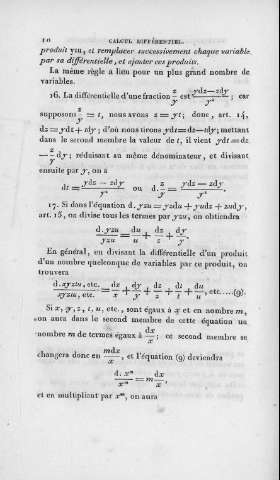 10 CALCUL DIFFÉRENTIEL.
produit yzu, et remplacer successivement chaque variable
par sa différentielle, et ajouter ces produits.
La même règle a lieu pour un plus grand nombre de
variables.
16. La différentielle d'une fraction z/y est (ydz—zdy)/y²; car
supposons z/y = t, nous avons z = yt; donc, art. 14,
dz = ydt + tdy; d'où nous tirons ydt=dz—tdy; mettant
dans le second membre la valeur de t, il vient ydt=dz
— z/y dy; réduisant au même dénominateur, et divisant
ensuite par y, on a
dt = (ydz — zdy)/y² ou d. z/y = (ydz — zdy)/y².
17. Si dans l'équation d. yzu = yzdu + yudz + zudy,
art. 15, on divise tous les termes par yzu, on obtiendra
d.yzu/yzu = du/u + dz/z + dy/y.
En général, en divisant la différentielle d'un produit
d'un nombre quelconque de variables par ce produit, on
trouvera
d.xyztu, etc./xyztu, etc. = dx/x + dy/y + dz/z + dt/t + du/u, etc....(9).
Si x, y, z, t, u, etc., sont égaux à x et en nombre m,
on aura dans le second membre de cette équation un
nombre m de termes égaux à dx/x; ce second membre se
changera donc en mdx/x, et l'équation (9) deviendra
d. xᵐ/xᵐ = m dx/x,
et en multipliant par xᵐ, on aura